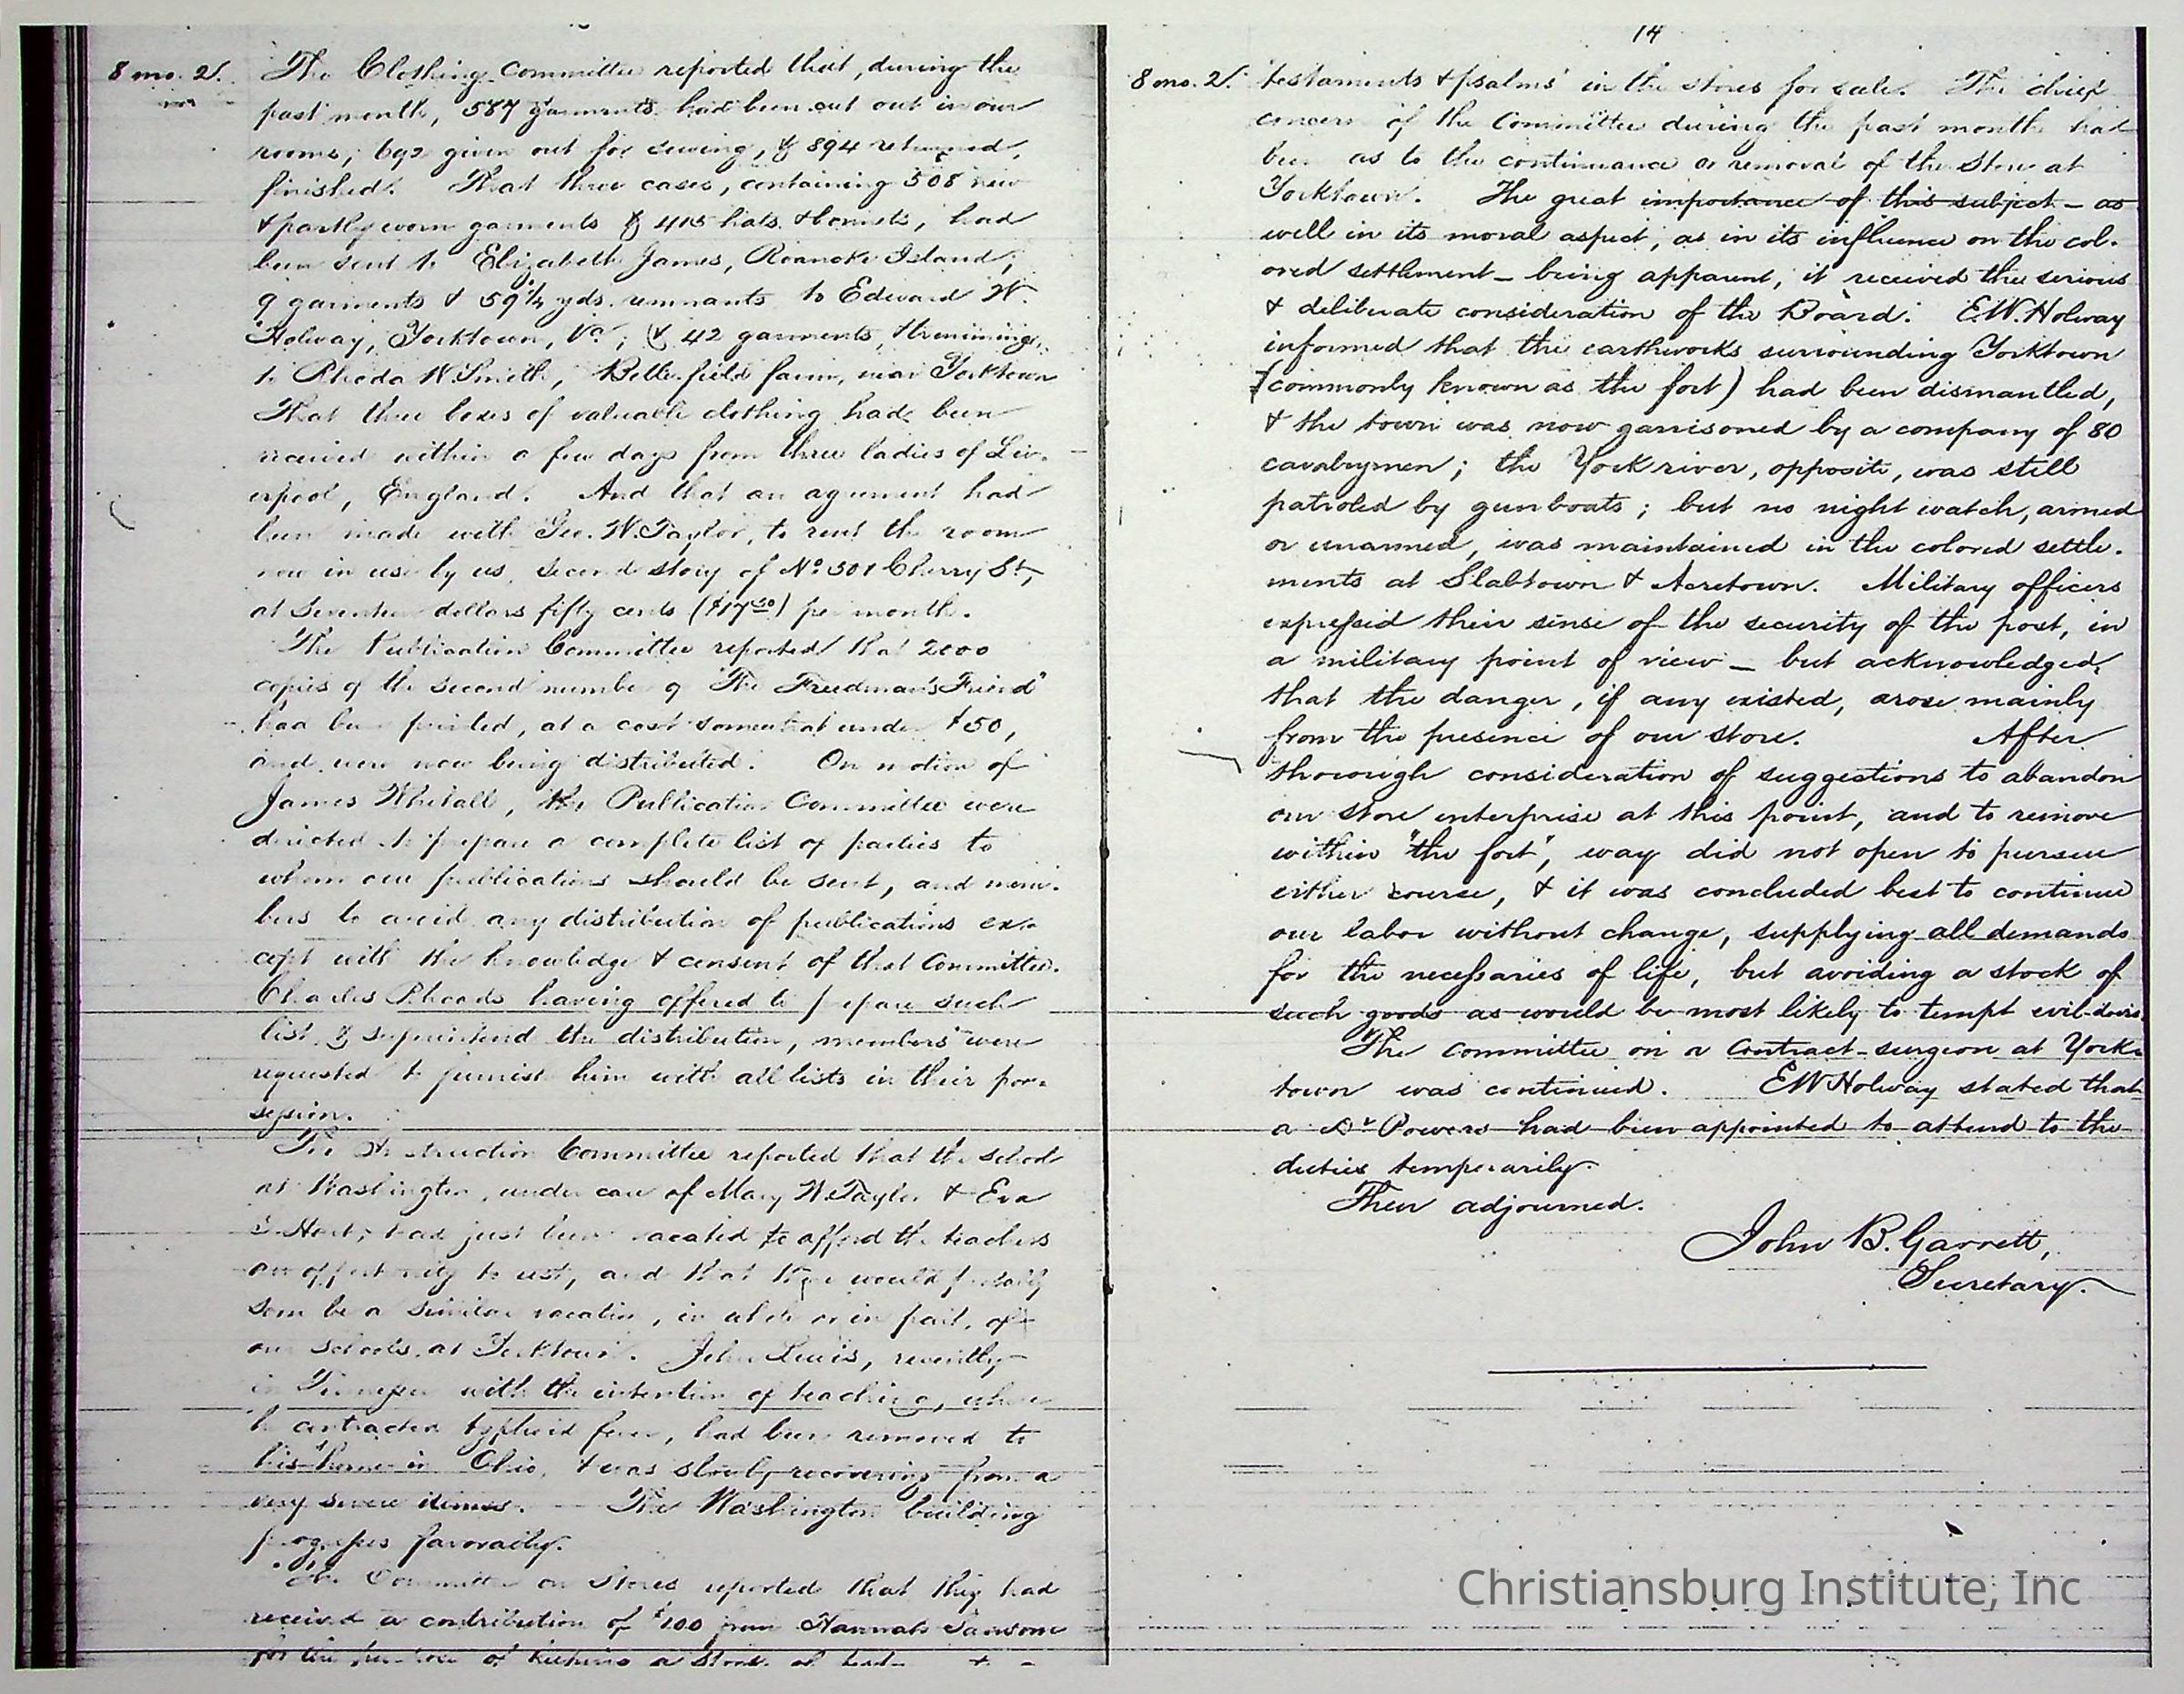 8 mo. 2. The Clothing Committee reported that, during the
past month, 587 garments had been cut out in our
rooms; 692 given out for sewing, & 894 returned,
finished. That three cases, containing 508 new
& partly worn garments & 415 hats & bonnets, had
been sent to Elizabeth James, Roanoke Island;
9 garments & 59¼ yds. remnants to Edward W.
Holway, Yorktown, Va; & 42 garments, & trimmings,
to Rhoda W. Smith, Bellefield farm, near Yorktown
That three boxes of valuable clothing had been
received within a few days from three ladies of Liv-
erpool, England. And that an agreement had
been made with Geo. W. Taylor, to rent the room
now in use by us, second story of No. 501 Cherry St,
at Seventeen dollars fifty cents ($17.50) per month.
The Publication Committee reported that 2000
copies of the second number of "The Freedman's Friend"
had been printed, at a cost somewhat under $50,
and were now being distributed. On motion of
James Whitall, the Publication Committee were
directed to prepare a complete list of parties to
whom our publications should be sent, and mem-
bers to avoid any distribution of publications ex-
cept with the knowledge & consent of that Committee.
Charles Rhoads having offered to prepare such
list, & superintend the distribution, members were
requested to furnish him with all lists in their pos-
session.
The Instruction Committee reported that the school
at Washington, under care of Mary W. Taylor & Eva
Hoet, had just been vacated to afford the teachers
an opportunity to rest, and that there would probably
soon be a similar vacation, in whole or in part, of
our schools at Yorktown. John Lewis, recently
in Tennessee with the intention of teaching, where
he contracted typhoid fever, had been removed to
his home in Ohio, & was slowly recovering from a
very severe illness. The Washington building
progresses favorably.
The Committee on Stores reported that they had
received a contribution of $100 from Hannah Sansom
for the purpose of keeping a stock of
14
8 mo. 2. testaments & psalms' in the stores for sale. The chief
concern of the Committee during the past month had
been as to the continuance or removal of the Store at
Yorktown. The great importance of this subject – as
well in its moral aspect, as in its influence on the col-
ored settlement – being apparent, it received the serious
& deliberate consideration of the Board. E.W. Holway
informed that the earthworks surrounding Yorktown
(commonly known as the fort) had been dismantled,
& the town was now garrisoned by a company of 80
cavalrymen; the York river, opposite, was still
patroled by gunboats; but no night watch, armed
or unarmed, was maintained in the colored settle-
ments at Slabtown & Acretown. Military officers
expressed their sense of the security of the post, in
a military point of view – but acknowledged,
that the danger, if any existed, arose mainly
from the presence of our store. After
thorough consideration of suggestions to abandon
our store enterprise at this point, and to remove
within "the fort", way did not open to pursue
either course, & it was concluded best to continue
our labor without change, supplying all demands
for the necessaries of life, but avoiding a stock of
such goods as would be most likely to tempt evil-doers
The committee on a Contract-surgeon at York-
town was continued. E W Holway stated that
a Dr Powers had been appointed to attend to the
duties temporarily.
Then adjourned.
John B. Garrett,
Secretary.
Christiansburg Institute, Inc